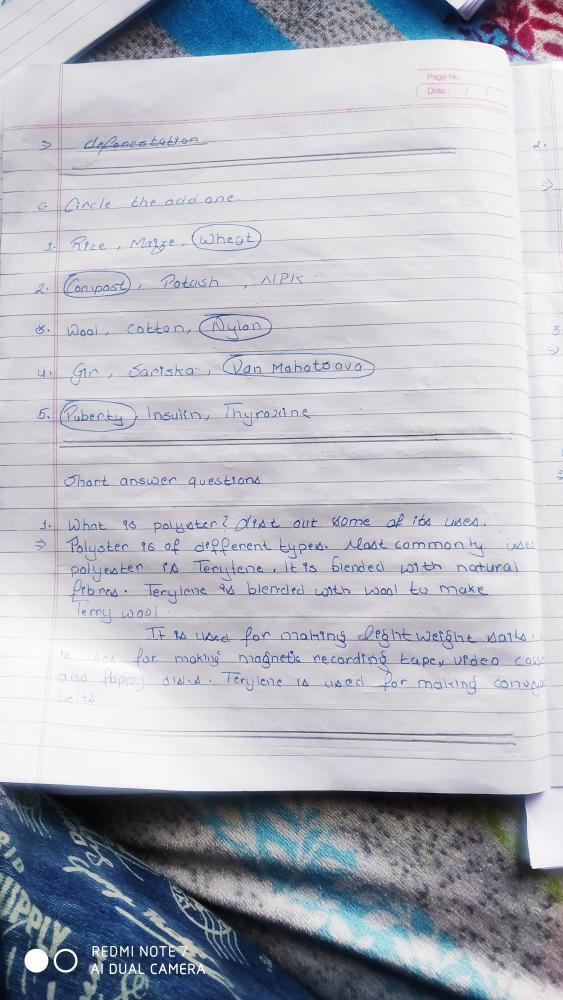 Page No.
Date : / /
⇒ deforestation
2.
⇒
C Circle the odd one.
1. Rice, Maize, Wheat
2. Compost, Potash, NPK
3. Wool, Cotton, Nylon
3
4. Gir, Sariska, Van Mahotsava
5. Puberty, Insulin, Thyroxine
Short answer questions
1. What is polyster? List out some of its uses.
⇒ Polyster is of different types. Most commonly used
polyester is Terylene. It is blended with natural
fibres. Terylene is blended with wool to make
Terry wool.
It is used for making light weight
is used for making magnetic recording tape, video
and floppy disks. Terylene is used for making
belts.
REDMI NOTE 7
AI DUAL CAMERA